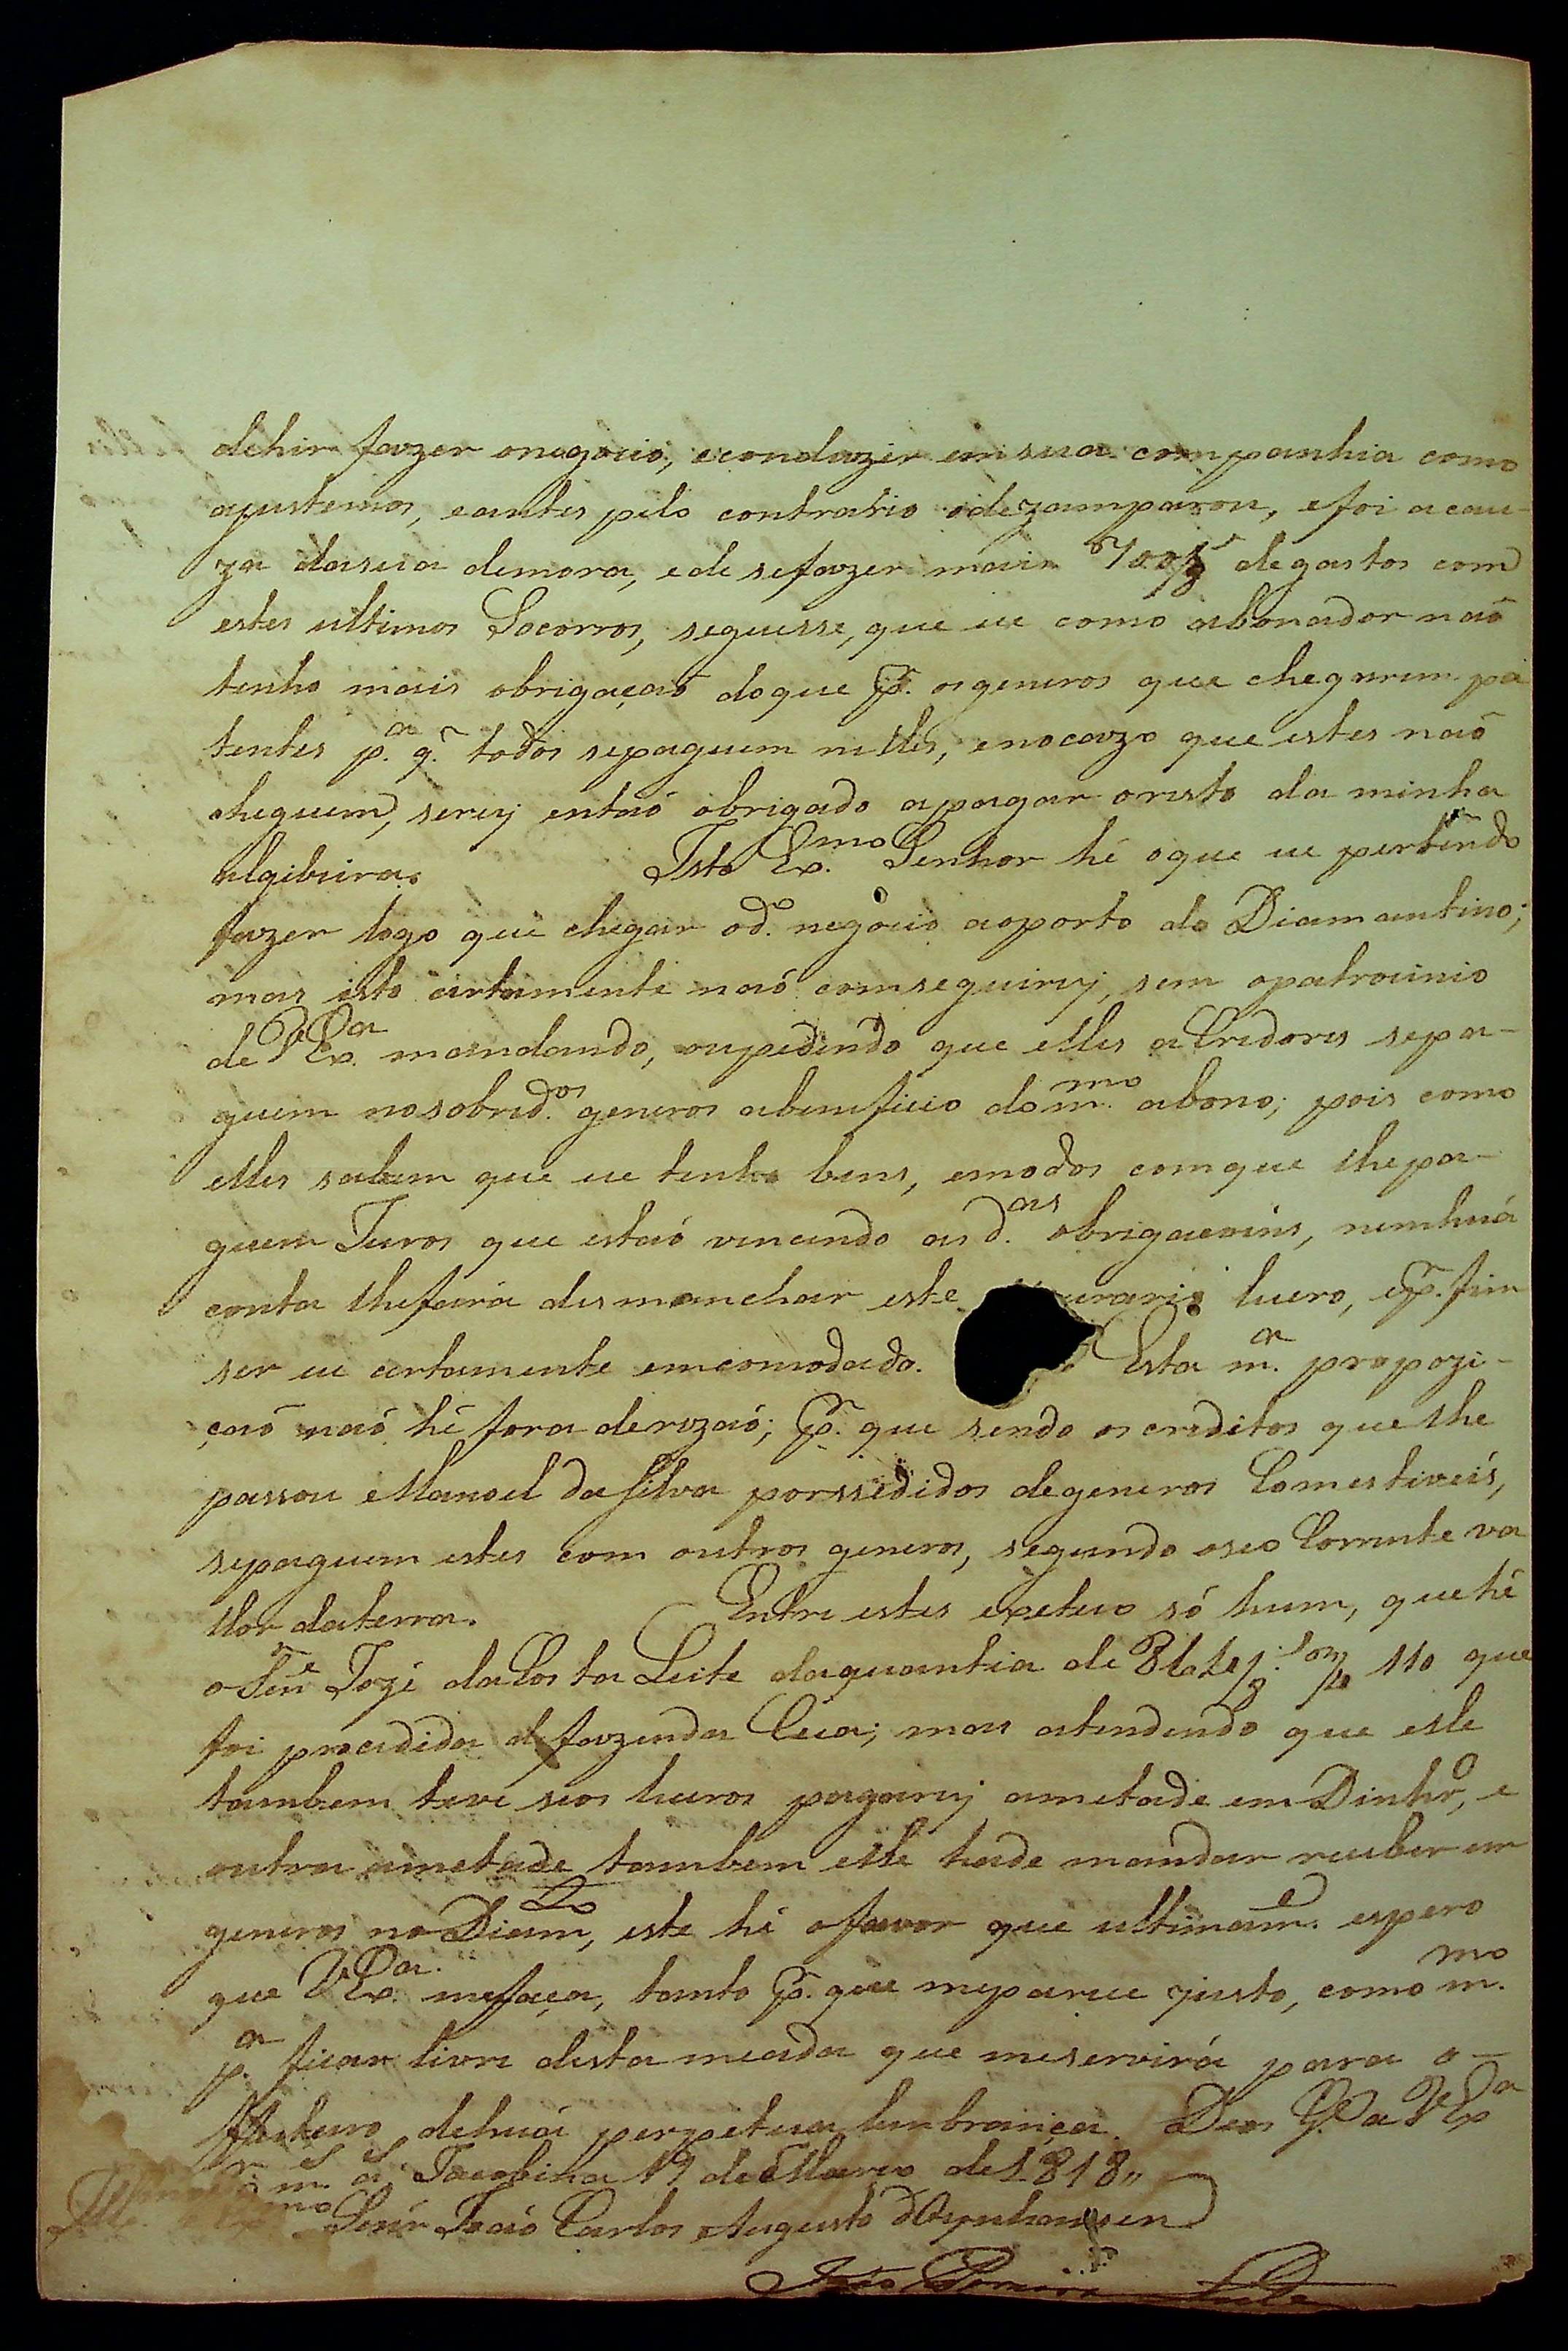 dehir fazer onegocio, econduzir emsua companhia como
ajustemos, eantes pelo contrario odezamparou, efoi acau-
za dasua demora, ede sefazer mais 700/8 degastos com
estes ultimos Socorros, seguesse, que eu como abonador naõ
tenho mais obrigaçaõ doque p.r osgeneros que chegarem pa
tentes p.a q.e todos sepaguem nelles, enocazo que estes naõ
cheguem, serej entaõ obrigado apagar oresto da minha
algibeira. Isto Ex.mo Senhor hé oque eu pertendo
fazer logo que chegar od.o negocio aoporto do Diamantino;
mas isto certamente naõ comseguirej, sem opatrocinio
de V Ex.a mandando, oupedindo que elles aCredores sepa-
guem nosobred.os generos abenificio dom.mo abono; pois como
elles sabem que eu tenho bens, emodos comque lhepa-
guem Juros que estaõ vencendo as d.as obrigacoins, nenhuá
conta lhefará desmanchar este lucro, ep.r fim
ser eu certamente emcomodado. Esta m.a propozi-
çaõ naõ hé fora derazaõ; p.r que sendo oscreditos que lhe
passou Manoel daSilva porssedidos degeneros Comestiveis,
sepaguem estes com outros generos, segundo oseo Corrente va
llor daterra. Entre estes exetuo só hum, quehé
o Senr.e Jozé daCosta Leite daquantia de que
foi procedida defazenda Ceca; mas atendendo que elle
tambem teve seos lucros pagarej ametade em Dinhr.o, e
outra ametade tambem elle hade mandar receber em
generos no Diam.no, este hé ofavor que ultimam.e espero
que V Ex.a mefaça, tanto p.r que meparece justo, como m.mo
p.a ficar livre desta meada que meservirá para o-
fucturo dehuá perpetua lembrança. Deos G.e a V Ex.a
m.s a.s Jacobina 17 deMarço de1818,,
Senr Joaõ Carlos Augusto dOeynhausen
João Pereira Leite